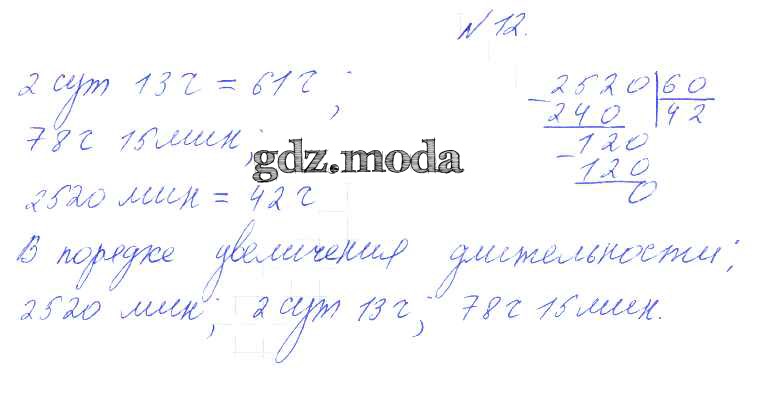 № 12.
2 сут 13 ч = 61 ч;
78 ч 15 мин;
2520 мин = 42 ч
2520 | 60
240 42
120
120
0
gdz.moda
В порядке увеличения длительности;
2520 мин; 2 сут 13 ч; 78 ч 15 мин.